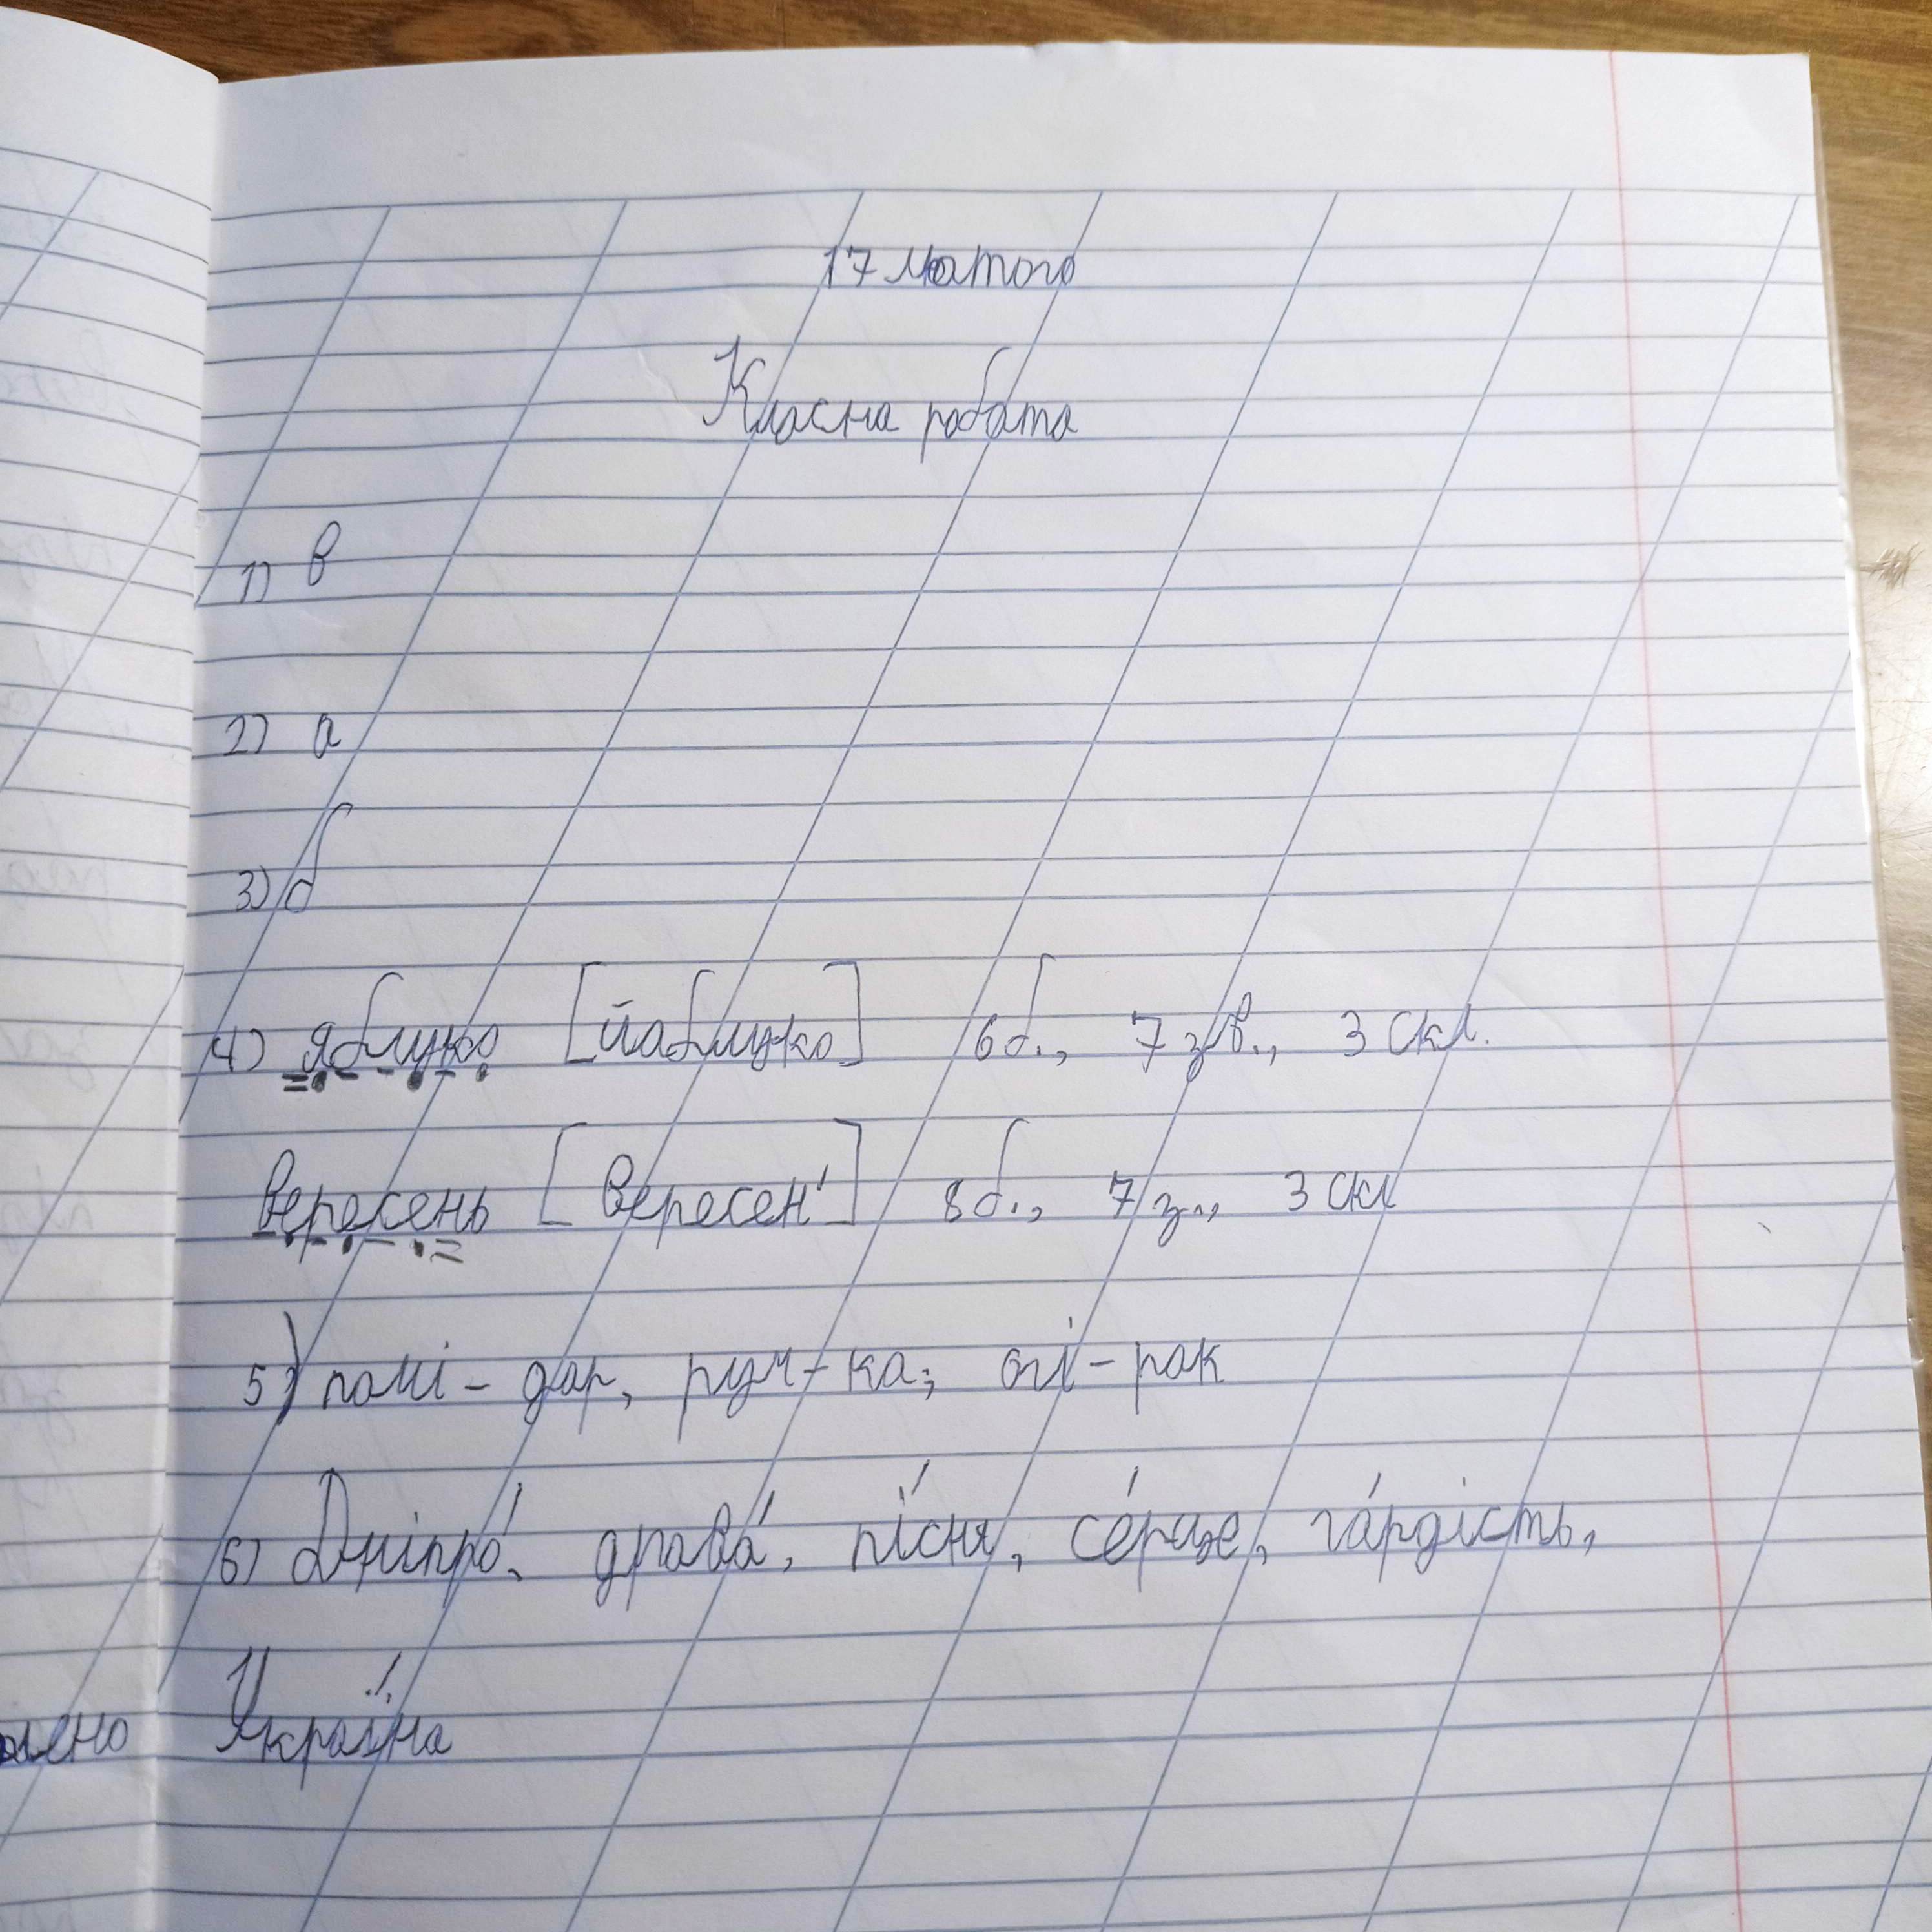 17 лютого
Класна робота
1) в
2) а
3) б
4) яблуко [йаблуко] 6 б., 7 зв., 3 скл.
вересень [вересен'] 8 б., 7 з., 3 скл
5) помі - дор, руч - ка, огі - рок
6) Дніпро́, дрова́, пі́сня, се́рце, го́рдість,
Украї́на